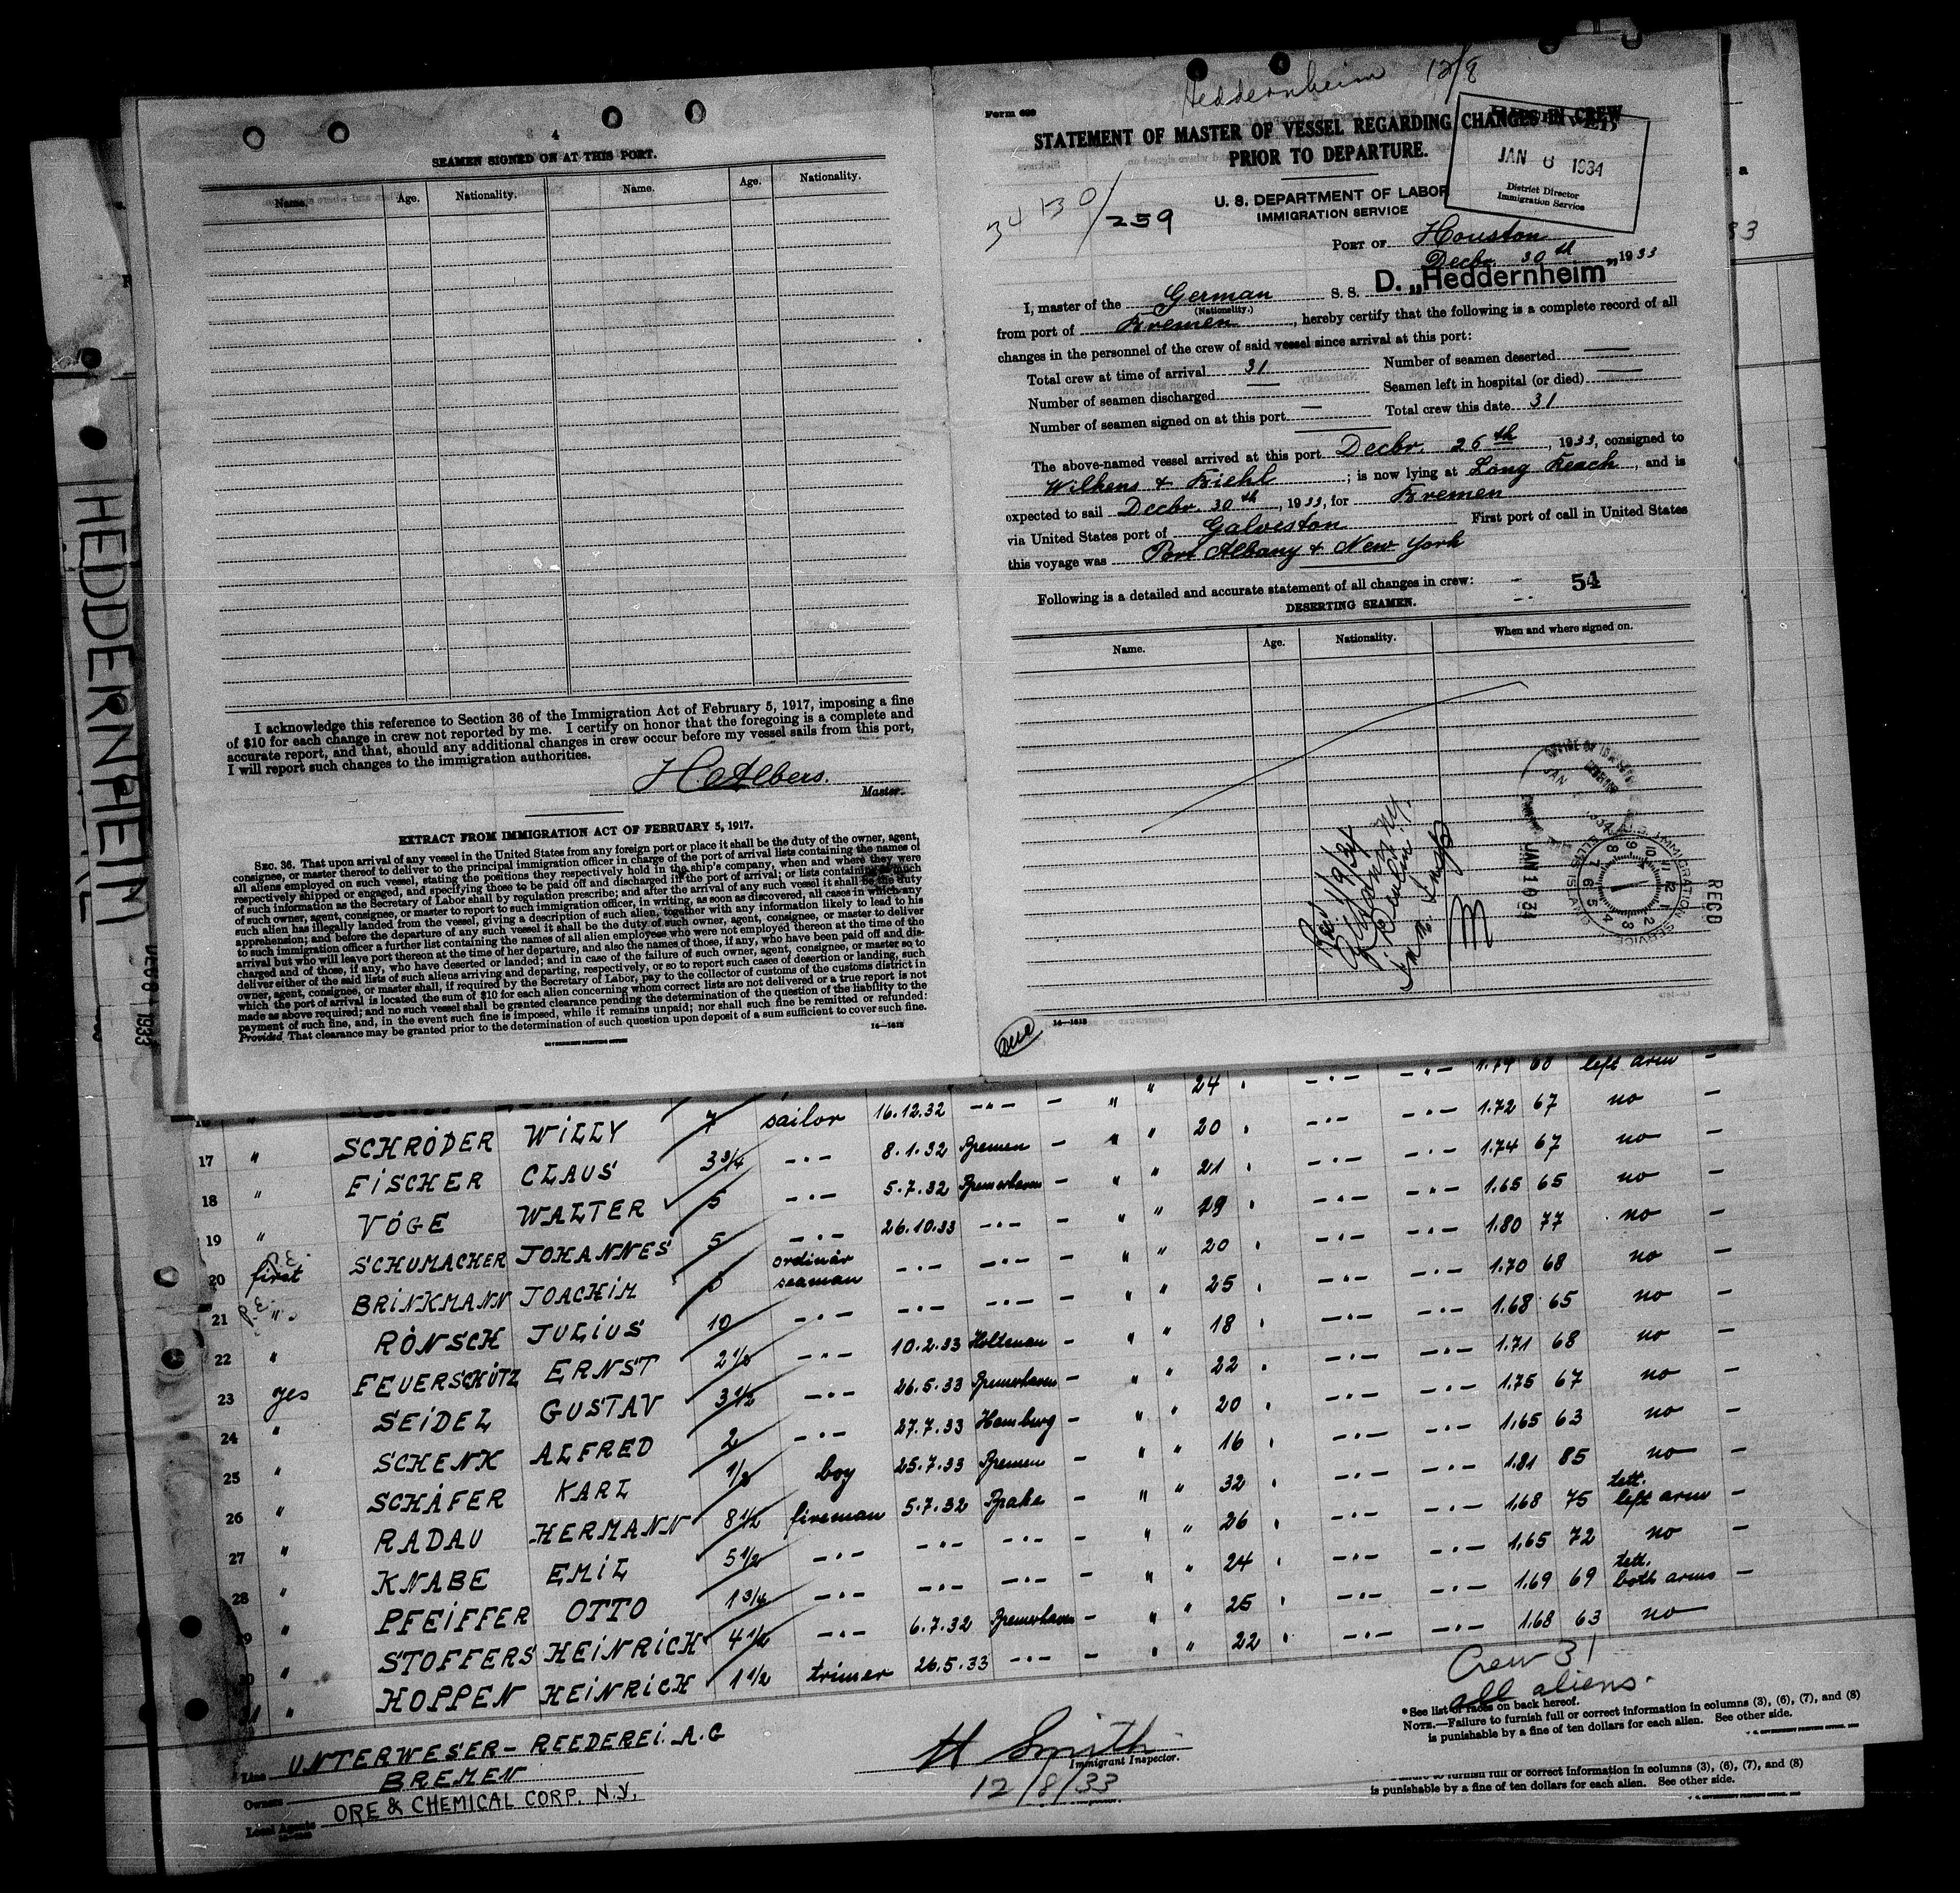 HEDDERNHEIM
4
SEAMEN SIGNED ON AT THIS PORT.
Name. Age. Nationality. Name. Age. Nationality.
I acknowledge this reference to Section 36 of the Immigration Act of February 5, 1917, imposing a fine
of $10 for each change in crew not reported by me. I certify on honor that the foregoing is a complete and
accurate report, and that, should any additional changes in crew occur before my vessel sails from this port,
I will report such changes to the immigration authorities.
H. Albers.
Master.
EXTRACT FROM IMMIGRATION ACT OF FEBRUARY 5, 1917.
SEC. 36. That upon arrival of any vessel in the United States from any foreign port or place it shall be the duty of the owner, agent,
consignee, or master thereof to deliver to the principal immigration officer in charge of the port of arrival lists containing the names of
all aliens employed on such vessel, stating the positions they respectively hold in the ship's company, when and where they were
respectively shipped or engaged, and specifying those to be paid off and discharged in the port of arrival; or lists containing so much
of such information as the Secretary of Labor shall by regulation prescribe; and after the arrival of any such vessel it shall be the duty
of such owner, agent, consignee, or master to report to such immigration officer, in writing, as soon as discovered, all cases in which any
such alien has illegally landed from the vessel, giving a description of such alien, together with any information likely to lead to his
apprehension; and before the departure of any such vessel it shall be the duty of such owner, agent, consignee, or master to deliver
to such immigration officer a further list containing the names of all alien employees who were not employed thereon at the time of the
arrival but who will leave port thereon at the time of her departure, and also the names of those, if any, who have been paid off and dis-
charged and of those, if any, who have deserted or landed; and in case of the failure of such owner, agent, consignee, or master so to
deliver either of the said lists of such aliens arriving and departing, respectively, or so to report such cases of desertion or landing, such
owner, agent, consignee, or master shall, if required by the Secretary of Labor, pay to the collector of customs of the customs district in
which the port of arrival is located the sum of $10 for each alien concerning whom correct lists are not delivered or a true report is not
made as above required; and no such vessel shall be granted clearance pending the determination of the question of the liability to the
payment of such fine, and, in the event such fine is imposed, while it remains unpaid; nor shall such fine be remitted or refunded:
Provided, That clearance may be granted prior to the determination of such question upon deposit of a sum sufficient to cover such fine.
14—1618
GOVERNMENT PRINTING OFFICE
Heddernheim 12/8
Form 689
STATEMENT OF MASTER OF VESSEL REGARDING CHANGES IN CREW
PRIOR TO DEPARTURE.
JAN 6 1934
District Director
Immigration Service
U. S. DEPARTMENT OF LABOR
IMMIGRATION SERVICE
34130/259
PORT OF Houston
Decbr. 30th, 1933
I, master of the German S. S. D. „Heddernheim"
(Nationality.)
from port of Bremen, hereby certify that the following is a complete record of all
changes in the personnel of the crew of said vessel since arrival at this port:
Total crew at time of arrival 31 Number of seamen deserted —
Number of seamen discharged — Seamen left in hospital (or died) —
Number of seamen signed on at this port — Total crew this date 31
The above-named vessel arrived at this port Decbr. 26th, 1933, consigned to
Wilkens & Biehl; is now lying at Long Reach, and is
expected to sail Decbr. 30th, 1933, for Bremen
via United States port of Galveston First port of call in United States
this voyage was Port Albany & New York
Following is a detailed and accurate statement of all changes in crew: 54
DESERTING SEAMEN.
Name. Age. Nationality. When and where signed on.
JAN 10 34
REC'D
IMMIGRATION SERVICE
ELLIS ISLAND
M
14—1618
24 " —"— —"— 1.74 68 left arm —
17 " SCHRÖDER WILLY 7 sailor 16.12.32 —"— — " " 20 " —"— —"— 1.72 67 no —
18 " FISCHER CLAUS 3 3/4 —"— 8.1.32 Bremen — " " 21 " —"— —"— 1.74 67 no —
19 " VÖGE WALTER 5 —"— 5.7.32 Bremerhaven — " " 29 " —"— —"— 1.65 65 no —
20 first P.E. SCHUMACHER JOHANNES 5 —"— 26.10.33 —"— — " " 20 " —"— —"— 1.80 77 no —
21 P.E. " BRINKMANN JOACHIM ordinär seaman —"— —"— — " " 25 " —"— —"— 1.70 68 no —
22 " RÖNSCH JULIUS 10 —"— —"— —"— — " " 18 " —"— —"— 1.68 65 no —
23 yes FEUERSCHÜTZ ERNST 2 1/2 —"— 10.2.33 Holtenau — " " 22 " —"— —"— 1.71 68 no —
24 " SEIDEL GUSTAV 3 1/2 —"— 26.5.33 Bremerhaven — " " 20 " —"— —"— 1.75 67 no —
25 " SCHENK ALFRED 2 —"— 27.7.33 Hamburg — " " 16 " —"— —"— 1.65 63 no —
26 " SCHÄFER KARL 1/2 boy 25.7.33 Bremen — " " 32 " —"— —"— 1.81 85 no —
27 " RADAU HERMANN 8 1/2 fireman 5.7.32 Brake — " " 26 " —"— —"— 1.68 75 tett. left arm —
28 " KNABE EMIL 5 1/2 —"— —"— —"— — " " 24 " —"— —"— 1.65 72 no —
29 " PFEIFFER OTTO 1 3/4 —"— —"— —"— — " " 25 " —"— —"— 1.69 69 tett. both arms —
30 " STOFFERS HEINRICH 4 1/2 —"— 6.7.32 Bremerhaven — " " 22 " —"— —"— 1.68 63 no
31 " HOPPEN HEINRICH 1 1/2 trimer 26.5.33 —"— —
Crew 31
all aliens.
Line UNTERWESER-REEDEREI. A.G
Owners BREMEN
Local Agents ORE & CHEMICAL CORP. N.Y.
H Smith
Immigrant Inspector.
12/8/33
*See list of races on back hereof.
NOTE.—Failure to furnish full or correct information in columns (3), (6), (7), and (8)
is punishable by a fine of ten dollars for each alien. See other side.
is punishable by a fine of ten dollars for each alien. See other side.